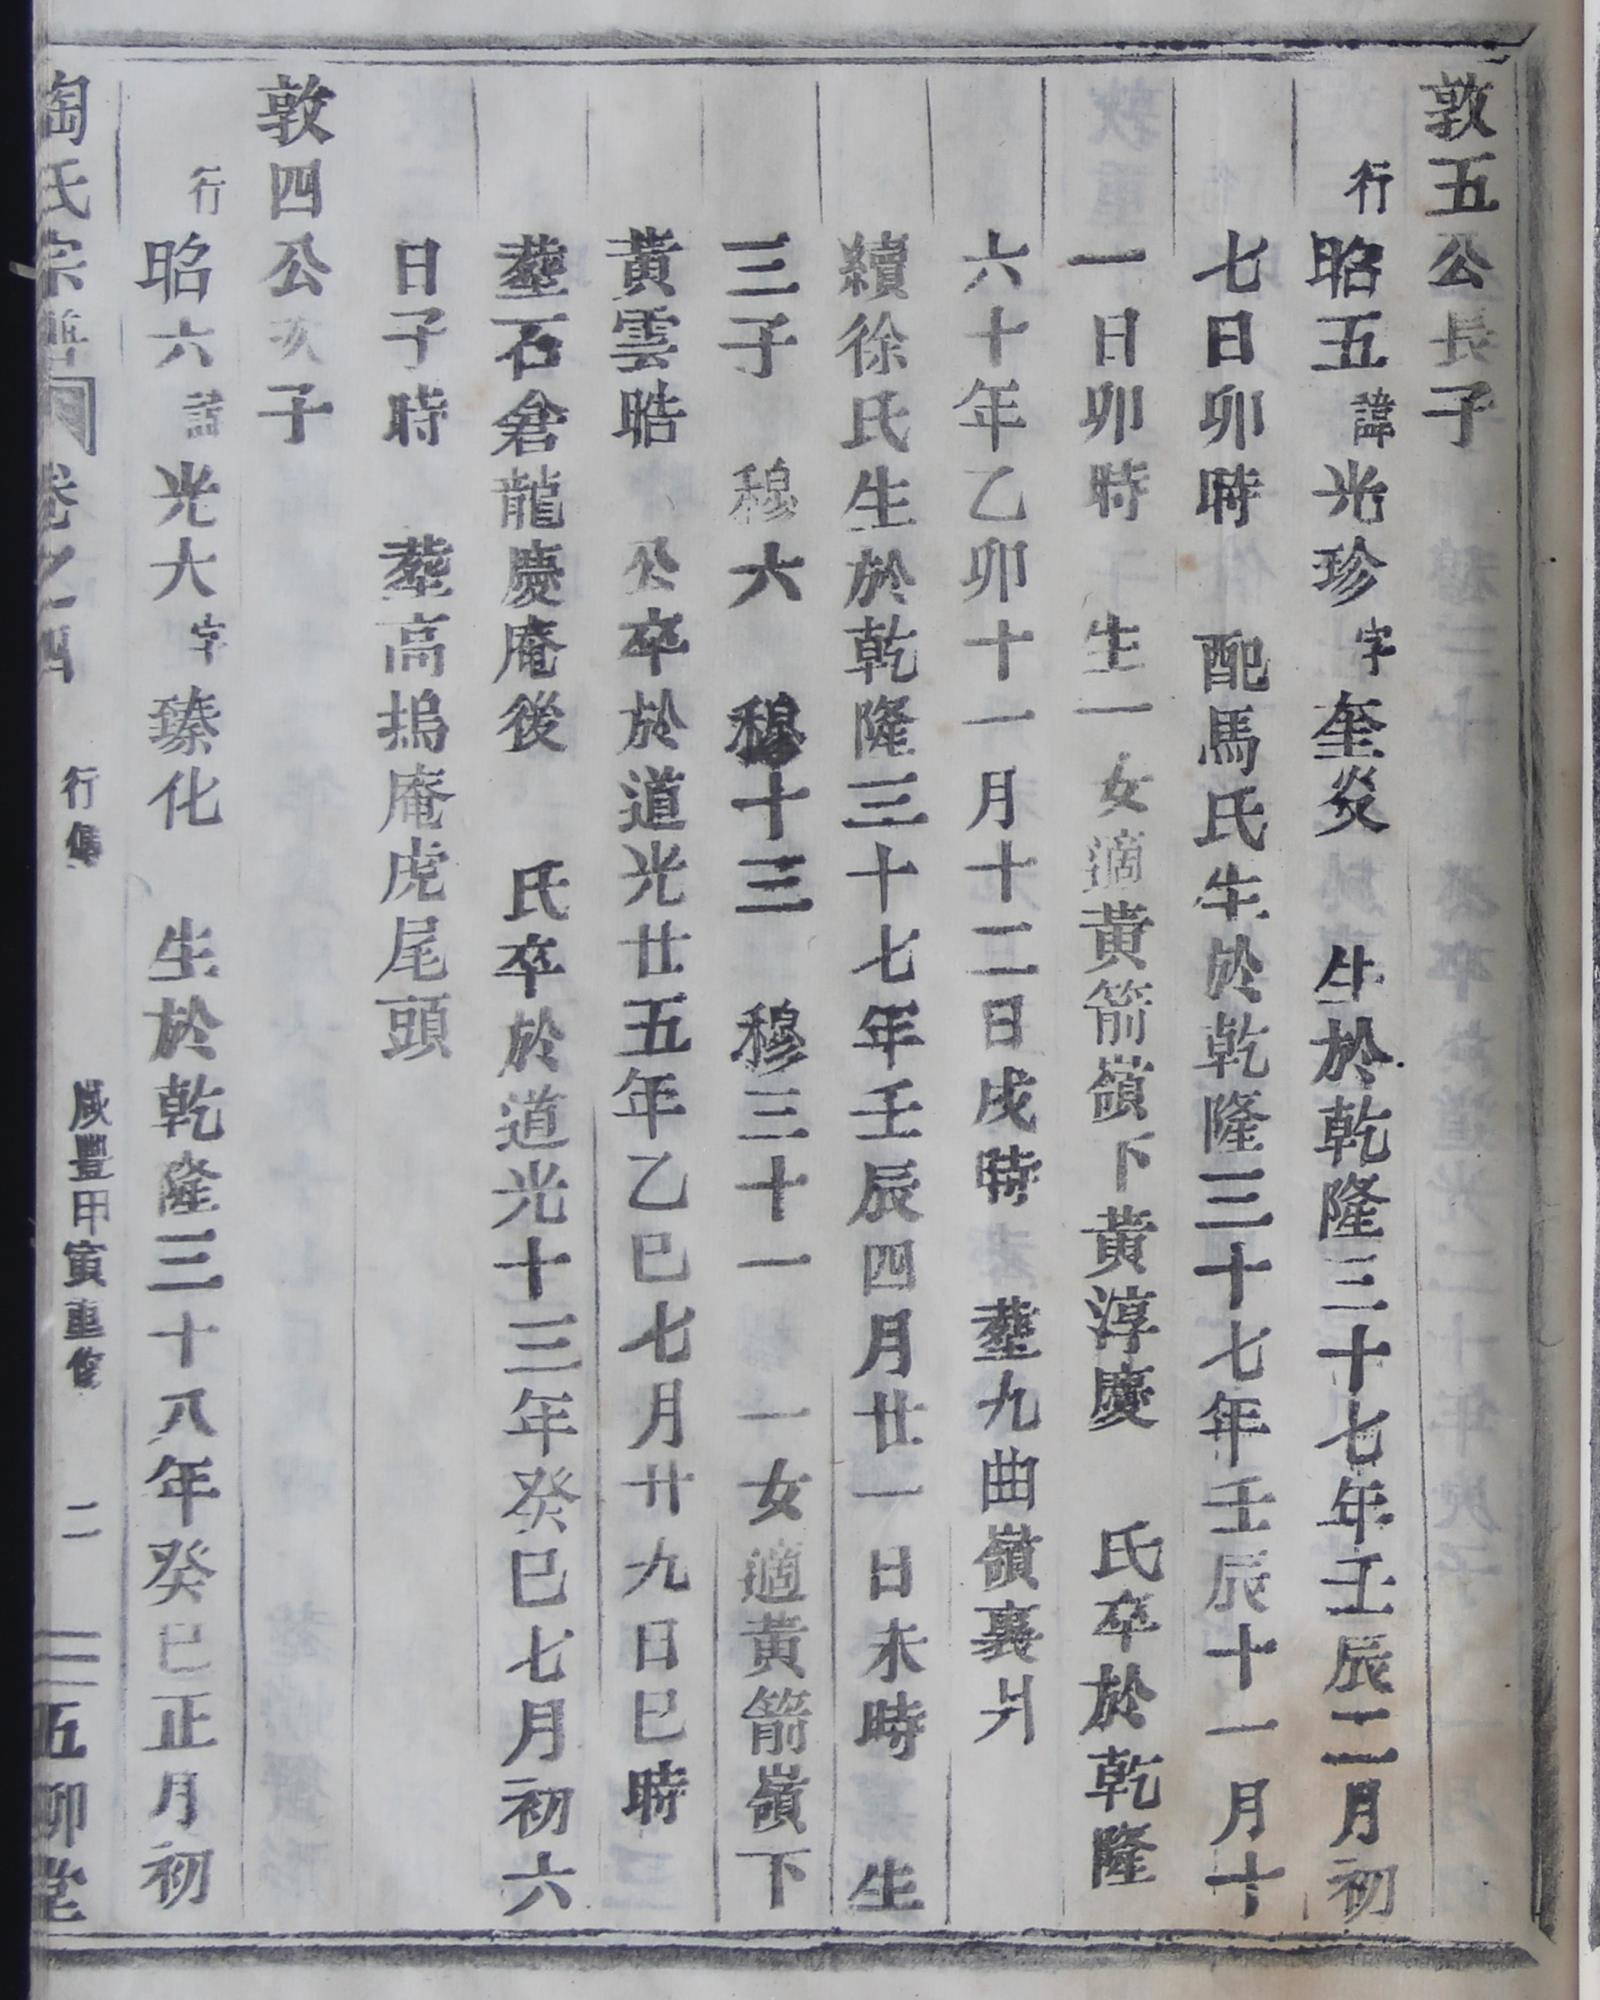 敦五公長子
行昭五諱光珍字奎炎　生於乾隆三十七年壬辰二月初
七日卯時　配馬氏生於乾隆三十七年壬辰十一月十
一日卯時　生一女適黃箭嶺下黃淳慶　氏卒於乾隆
六十年乙卯十一月十二日戌時　塟九曲嶺裏爿
續徐氏生於乾隆三十七年壬辰四月廿一日未時　生
三子　穆六　穆十三　穆三十一　一女適黃箭嶺下
黃雲晧　公卒於道光廿五年乙巳七月廿九日巳時
塟石倉龍慶庵後　氏卒於道光十三年癸巳七月初六
日子時　塟高摀庵虎尾頭
敦四公次子
行昭六諱光大字臻化　生於乾隆三十八年癸巳正月初
陶氏宗譜　卷之一四　行傳　咸豐甲寅重修　二　五柳堂